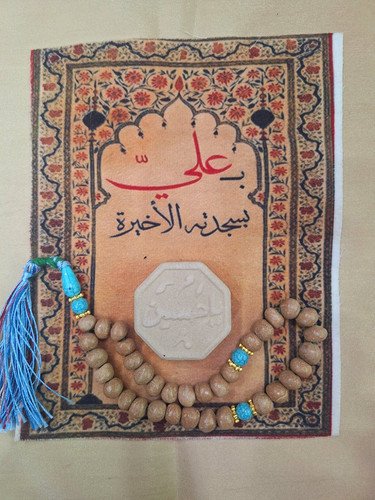 بـ عليّ
بسجدته الأخيرة
يا حسين